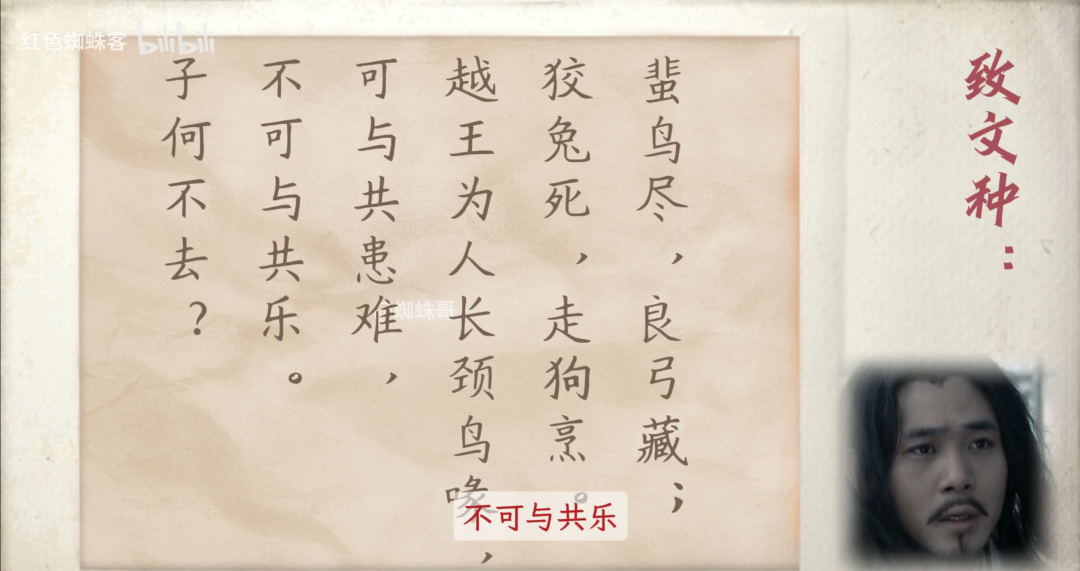 红色蜘蛛客 bilibili
致文种：
蜚鸟尽，良弓藏；
狡兔死，走狗烹。
越王为人长颈鸟喙，
可与共患难，
不可与共乐。
子何不去？
蜘蛛哥
不可与共乐